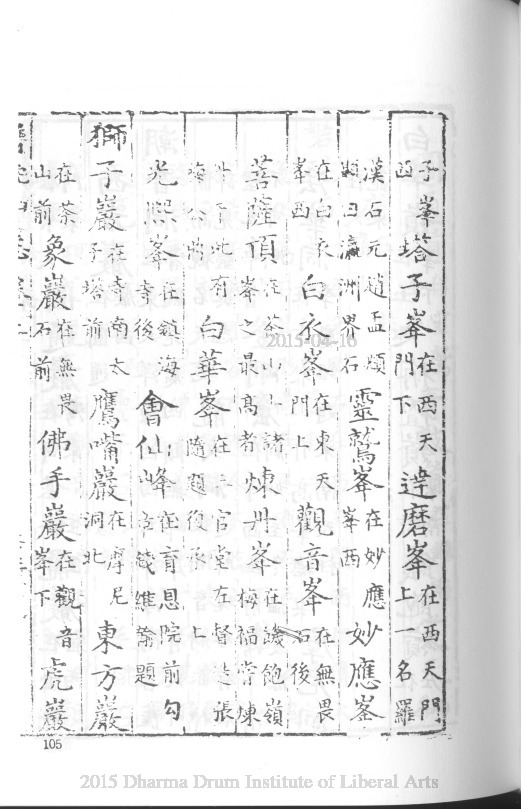 子峯西塔子峯在西天門下達磨峯在西天門上一名羅
漢石元趙孟頫題曰瀛洲界石靈鷲峯在妙應峯西妙應峯
在白衣峯西白衣峯在東天門上觀音峯在無畏石後
菩薩頂在茶山上諸峯之最高者煉丹峯在磯飽嶺梅福嘗煉
于此有白華峯在官堂左督造張隨題後上
光熙峯在鎮海寺後會仙峰在育恩院前勾錢維題
獅子巖在寺南太子塔前鷹嘴巖在摩尼洞北東方巖
在茶山前象巖在無畏石前佛手巖在觀音峯下虎巖
105
2015-04-16
2015 Dharma Drum Institute of Liberal Arts